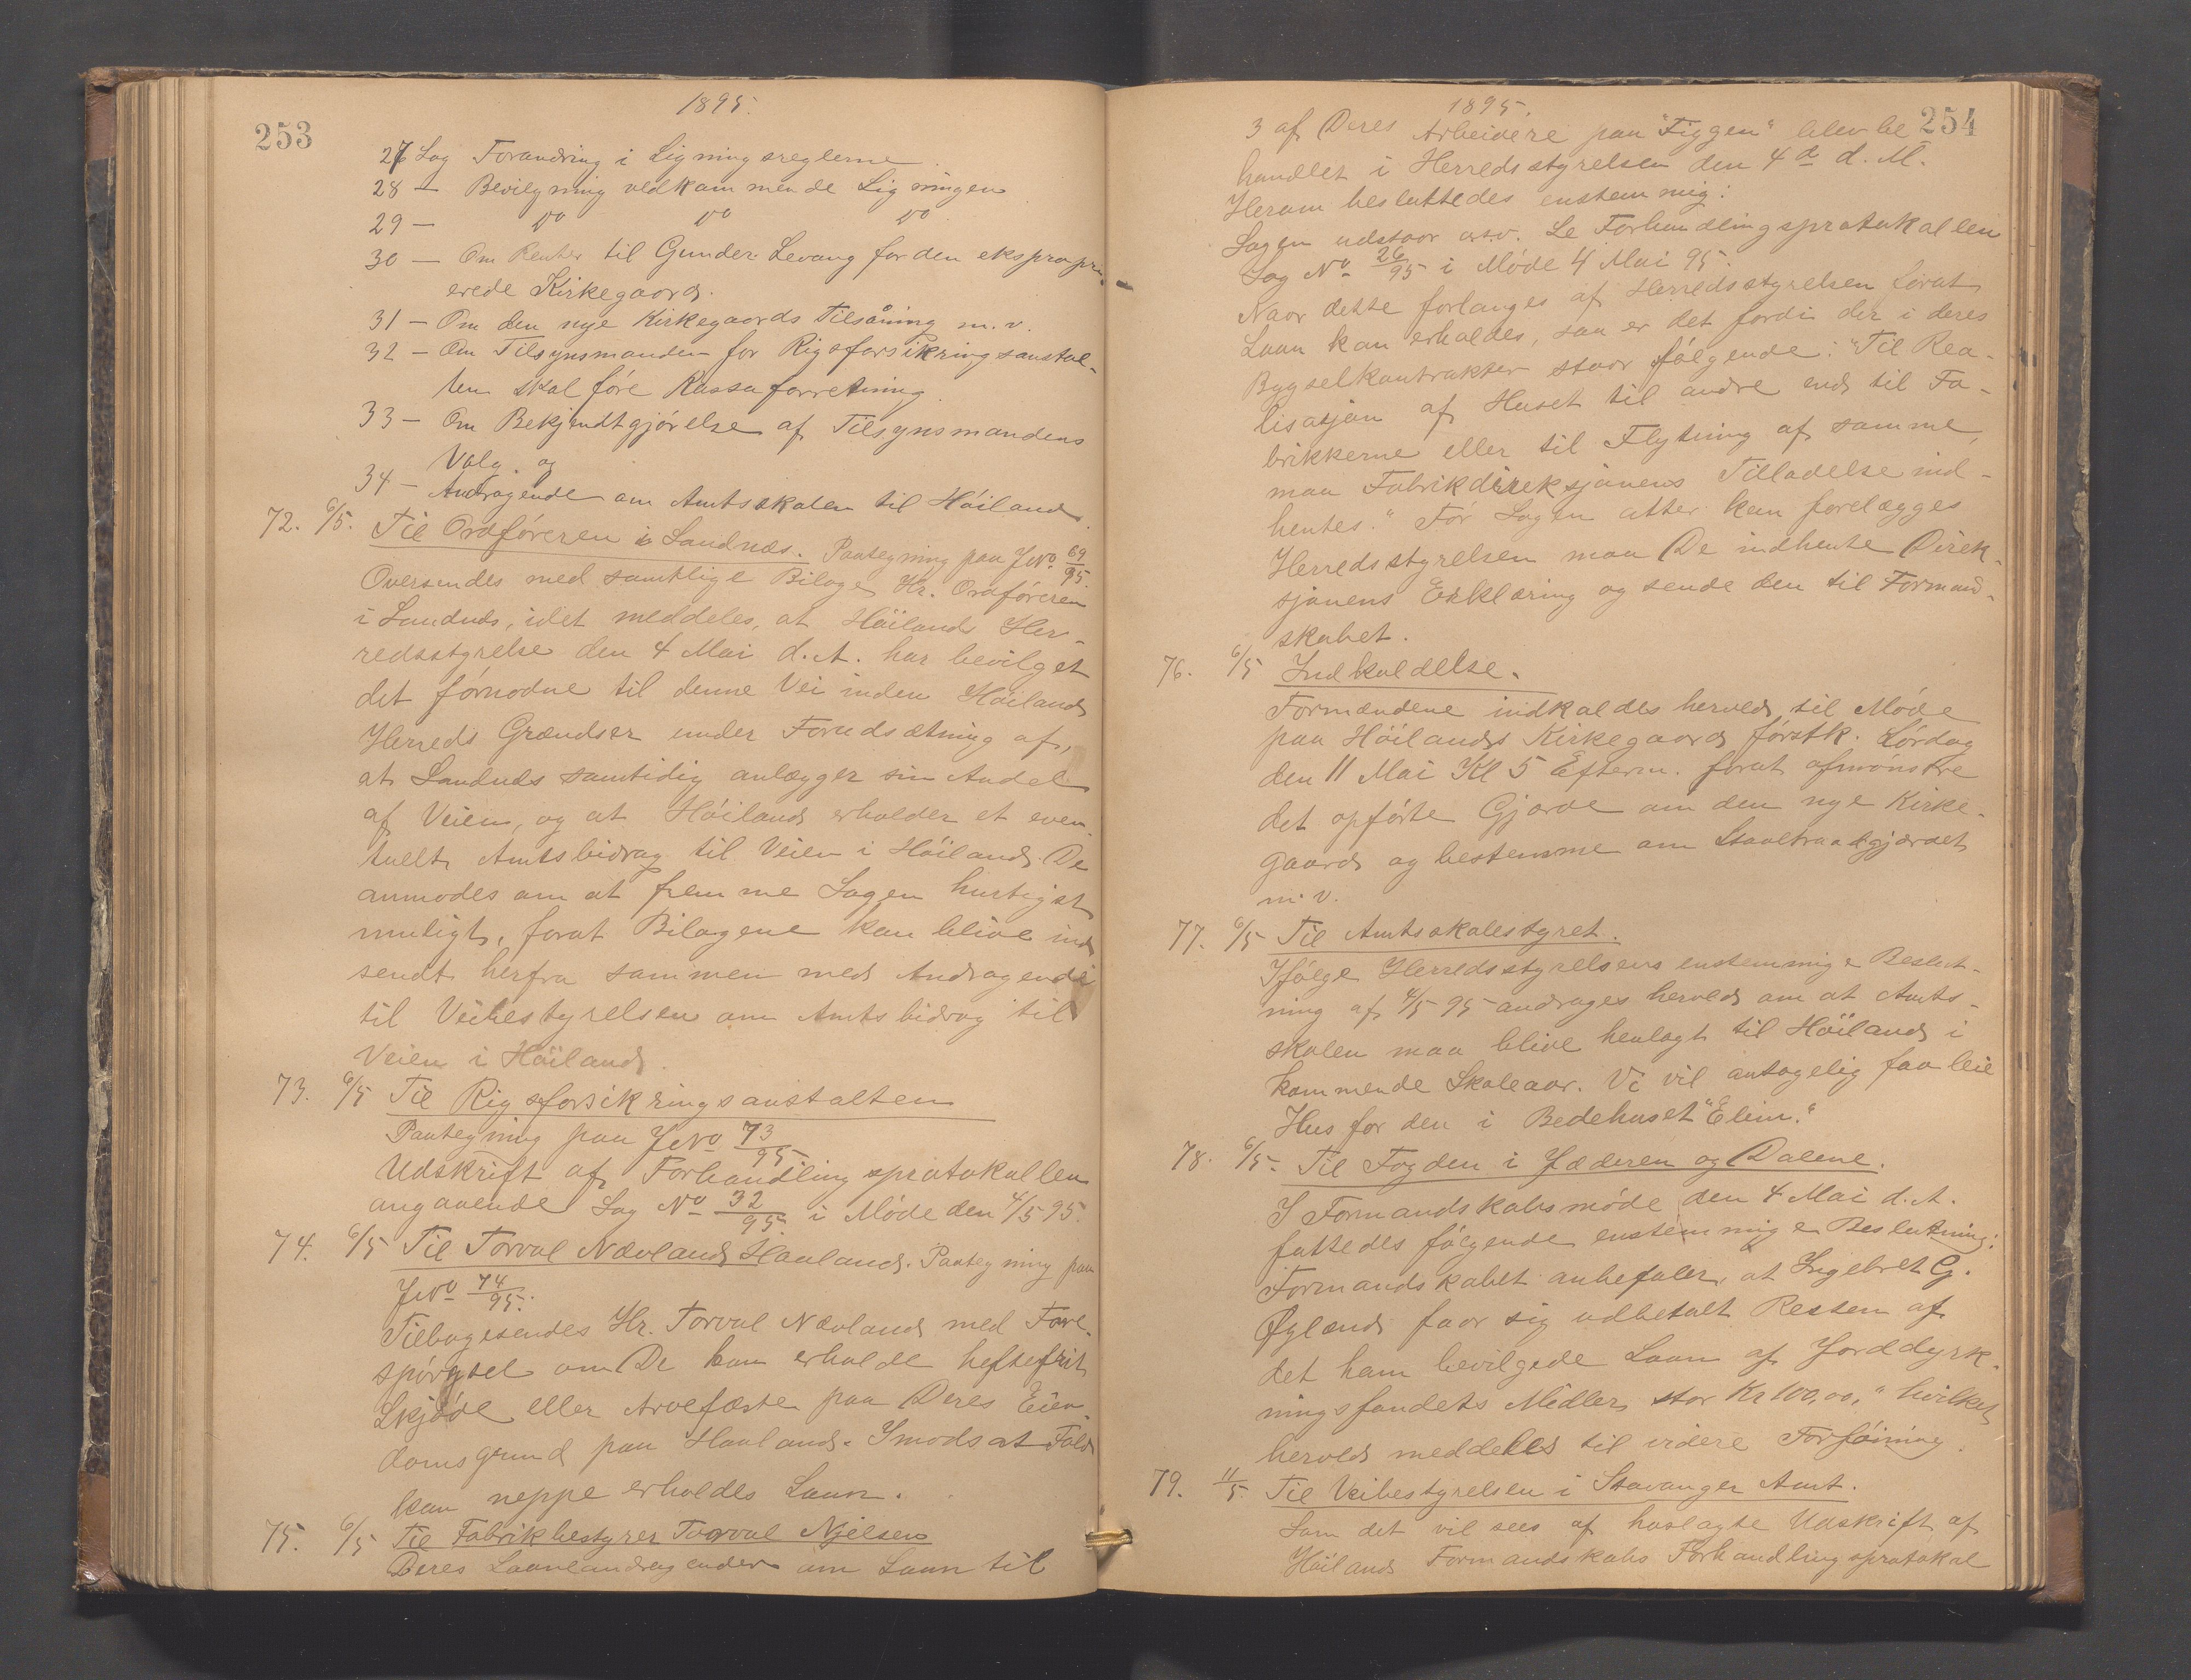 1895.
253
27 Sag Forandring i Ligningsreglerne.
28 — Bevilgning vedkommende Ligningen
29 — do do do
30 — Om Renter til Gunder Levang for den ekspropri-
erede Kirkegaard.
31 — Om den nye Kirkegaards Tilsåning m. v.
32 — Om Tilsynsmanden for Rigsforsikringsanstal-
ten skal føre Kassaforretning.
33 — Om Bekjendtgjørelse af Tilsynsmandens
Valg. og
34 — Andragende om Amtsskolen til Høiland.
72. 6/5. Til Ordføreren i Sandnæs. Paategning paa J.No. 69/95.
Oversendes med samtlige Bilage Hr. Ordføreren
i Sandnæs, idet meddeles, at Høilands Her-
redsstyrelse den 4 Mai d. A. har bevilget
det fornødne til denne Vei inden Høilands
Herreds Grændser under Forudsætning af,
at Sandnæs samtidig anlægger sin Andel
af Veien, og at Høiland erholder et even-
tuelt Amtsbidrag til Veien i Høiland. De
anmodes om at fremme Sagen hurtigst
muligt, forat Bilagene kan blive ind
sendt herfra sammen med Andragende
til Veibestyrelsen om Amtsbidrag til
Veien i Høiland.
73. 6/5 Til Rigsforsikringsanstalten
Paategning paa J.No 73/95
Udskrift af Forhandlingsprotokollen
angaaende Sag No 32/95 i Møde den 4/5 95.
74. 6/5 Til Torval Nævland Haaland. Paategning paa
J.No 74/95.
Tilbagesendes Hr. Torval Nævland med Fore-
spørgsel om De kan erholde heftefrit
Skjøde eller Arvefæste paa Deres Eien-
domsgrund paa Haaland. I modsat Fald
kan neppe erholdes Laan.
75. 6/5 Til Fabrikbestyrer Torval Njelsen
Deres Laaneandragender om Laan til
1895.
254
3 af Deres Arbeidere paa "Figgen" blev be
handlet i Herredsstyrelsen den 4de d. M.
Herom besluttedes enstemmig:
Sagen udstaar osv. Se Forhandlingsprotokollen
Sag No 26/95 i Møde 4 Mai 95.
Naar dette forlanges af Herredsstyrelsen forat
Laan kan erholdes, saa er det fordi der i deres
Bygselkontrakter staar følgende: "Til Rea-
lisasjon af Huset til andre end til Fa-
brikkerne eller til Flytning af samme,
maa Fabrikdireksjonens Tilladelse ind-
hentes." Før Sagen atter kan forelægges
Herredsstyrelsen maa De indhente Direk-
sjonens Erklæring og sende den til Formand-
skabet.
76. 6/5 Indkaldelse.
Formændene indkaldes herved til Møde
paa Høilands Kirkegaard førstk. Lørdag
den 11 Mai Kl 5 Efterm. forat afmønstre
det opførte Gjærde om den nye Kirke-
gaard og bestemme om Staaltraadgjærdet
m. v.
77. 6/5 Til Amtsskolestyret.
Ifølge Herredsstyrelsens enstemmige Beslut-
ning af 4/5 95 andrages herved om at Amts-
skolen maa blive henlagt til Høiland i
kommende Skoleaar. Vi vil antagelig faa leie
Hus for den i Bedehuset "Elim."
78. 6/5. Til Fogden i Jæderen og Dalene.
I Formandskabsmøde den 4 Mai d. A.
fattedes følgende enstemmige Beslutning:
Formandskabet anbefaler, at Ingebret G.
Øglænd faar sig udbetalt Resten af
det ham bevilgede Laan af Jorddyrk-
ningsfondets Midler stor Kr 100,00," hvilket
herved meddeles til videre Forføining.
79. 11/5. Til Veibestyrelsen i Stavanger Amt.
Som det vil sees af hoslagte Udskrift af
Høilands Formandskabs Forhandlingsprotokol